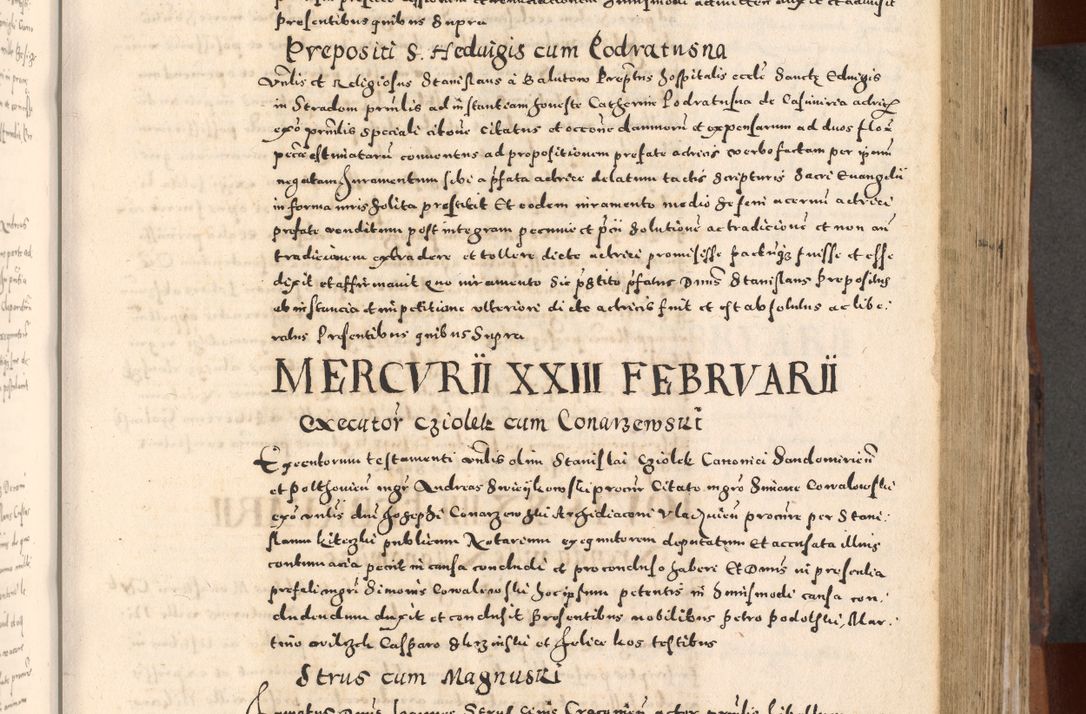 presentibus quibus Supra
Prepositi S. Heduigis cum Podratusna
Vnlis et Religiosus Stanislaus à Balutow Preptus hospitalis eccle Sanctę Eduigis
in Stradom prnlis ad instantiam honeste Catherine Podratusna de Casimiria actricę
exō prnlis speciali citone citatus et occōne damnoru et expensarum ad duos flor
pecce estimataru conuentus ad propositionem prefate actricis verbo factam per ipsum
negatam Juramentum sibi a pfata actrice delatum tactis scripturis Sacri Euangelii
in forma iuris Solita prestitit Et eodem iuramento medio se feni acerui actrici
prefate venditum post integram pecunie et pcii Solutione ac tradicione et non an
tradicionem extradere et tollere dicte actrici promisisse pactuqz fuisse et esse
dixit et affirmauit Quo iuramento Sic pstito pfatus Dnus Stanislaus Prepositus
ab instancia et impetitione vlteriori dicte actricis fuit et est absolutus ac libe
ratus Presentibus quibus Supra
MERCVRII XXIII FEBRVARII
Executor Cziolek cum Conarzewski
Executorum testamenti vnlis olim Stanislai Cziolek Canonici Sandomirien
et Polthouien mgr Andreas Swieykowski procur Citato mgro Simone Cowalowski
exō vnlis dni Josephi Conarzewski Archidiaconi Vladicuien procure per Stani
slaum Kiteczki publicum Notarium exequutorem deputatum Et accusata illius
contumacia peciit in causa concludi et pro concluso haberi Et Dnus in presentia
prefati mgri Simonis Cowalewski hoc ipsum petentis in huiusmodi causa con
cludendum duxit et conclusit Presentibus nobilibus Petro Podolski, Mar
tino Casparo et Felice kos testibus
Strus cum Magnuski